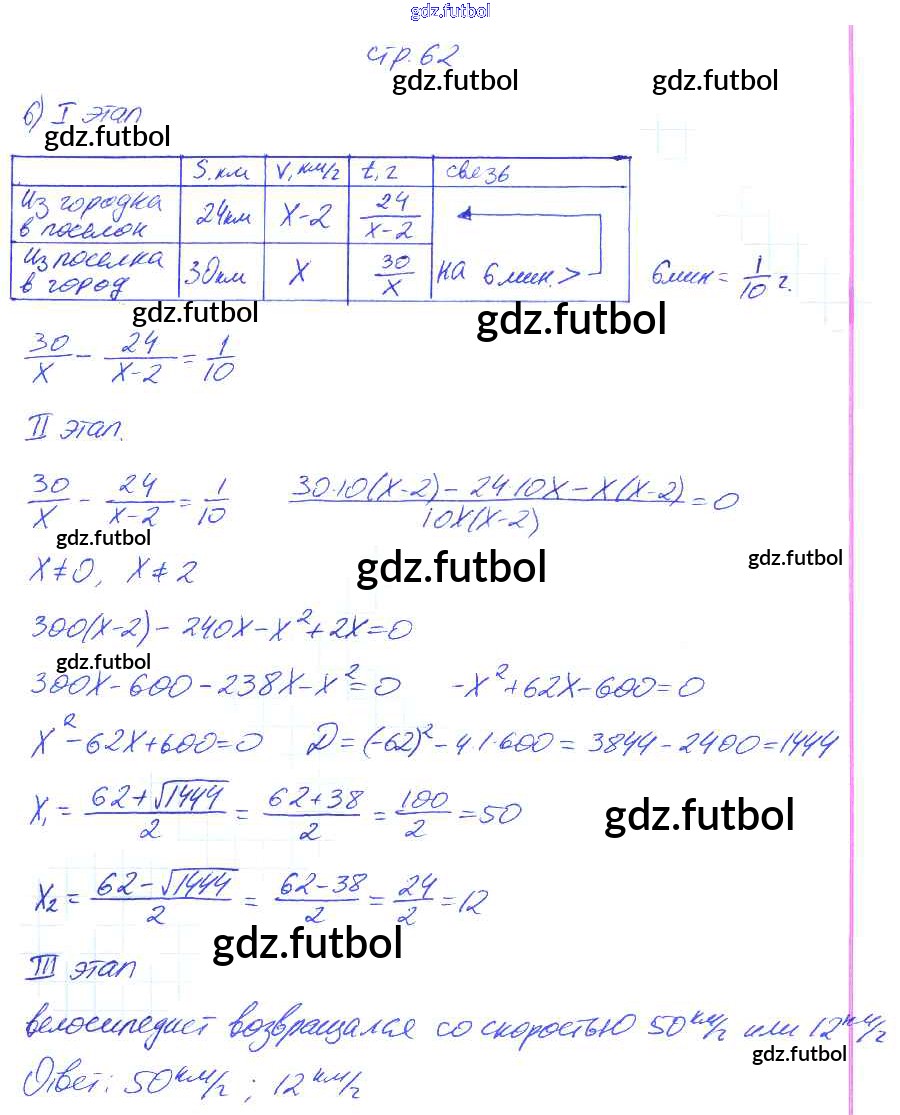 gdz.futbol
стр. 62
gdz.futbol gdz.futbol
б) I этап
gdz.futbol
S. км V, км/ч t, ч связь
Из городка в поселок 24км x-2 24/(x-2)
Из поселка в город 30км x 30/x на 6 мин. > 6мин = 1/10 ч.
gdz.futbol gdz.futbol
30/x - 24/(x-2) = 1/10
II этап.
30/x - 24/(x-2) = 1/10 (30·10(x-2) - 24·10x - x(x-2))/(10x(x-2)) = 0
gdz.futbol
x≠0, x≠2 gdz.futbol gdz.futbol
300(x-2) - 240x - x² + 2x = 0
gdz.futbol
300x - 600 - 238x - x² = 0 -x² + 62x - 600 = 0
x² - 62x + 600 = 0 D = (-62)² - 4·1·600 = 3844 - 2400 = 1444
x₁ = (62+√1444)/2 = (62+38)/2 = 100/2 = 50 gdz.futbol
x₂ = (62-√1444)/2 = (62-38)/2 = 24/2 = 12
gdz.futbol
III этап
велосипедист возвращался со скоростью 50 км/ч или 12 км/ч
gdz.futbol
Ответ: 50 км/ч; 12 км/ч